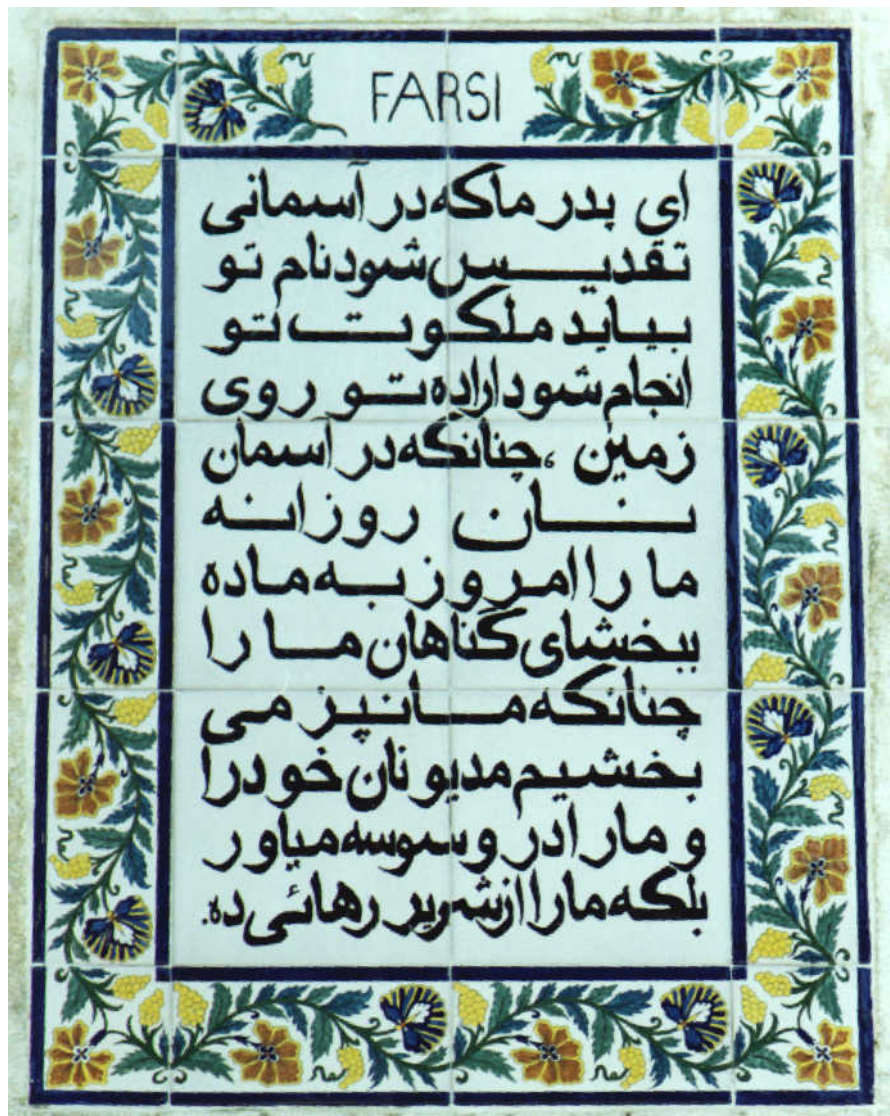 FARSI
ای پدر ما که در آسمانی
تقدیس شود نام تو
بیاید ملکوت تو
انجام شود اراده تو روی
زمین ، چنانکه در آسمان
نان روزانه
ما را امروز به ما ده
ببخشای گناهان ما را
چنانکه ما نیز می
بخشیم مدیونان خود را
و ما را در وسوسه میاور
بلکه ما را از شریر رهائی ده.